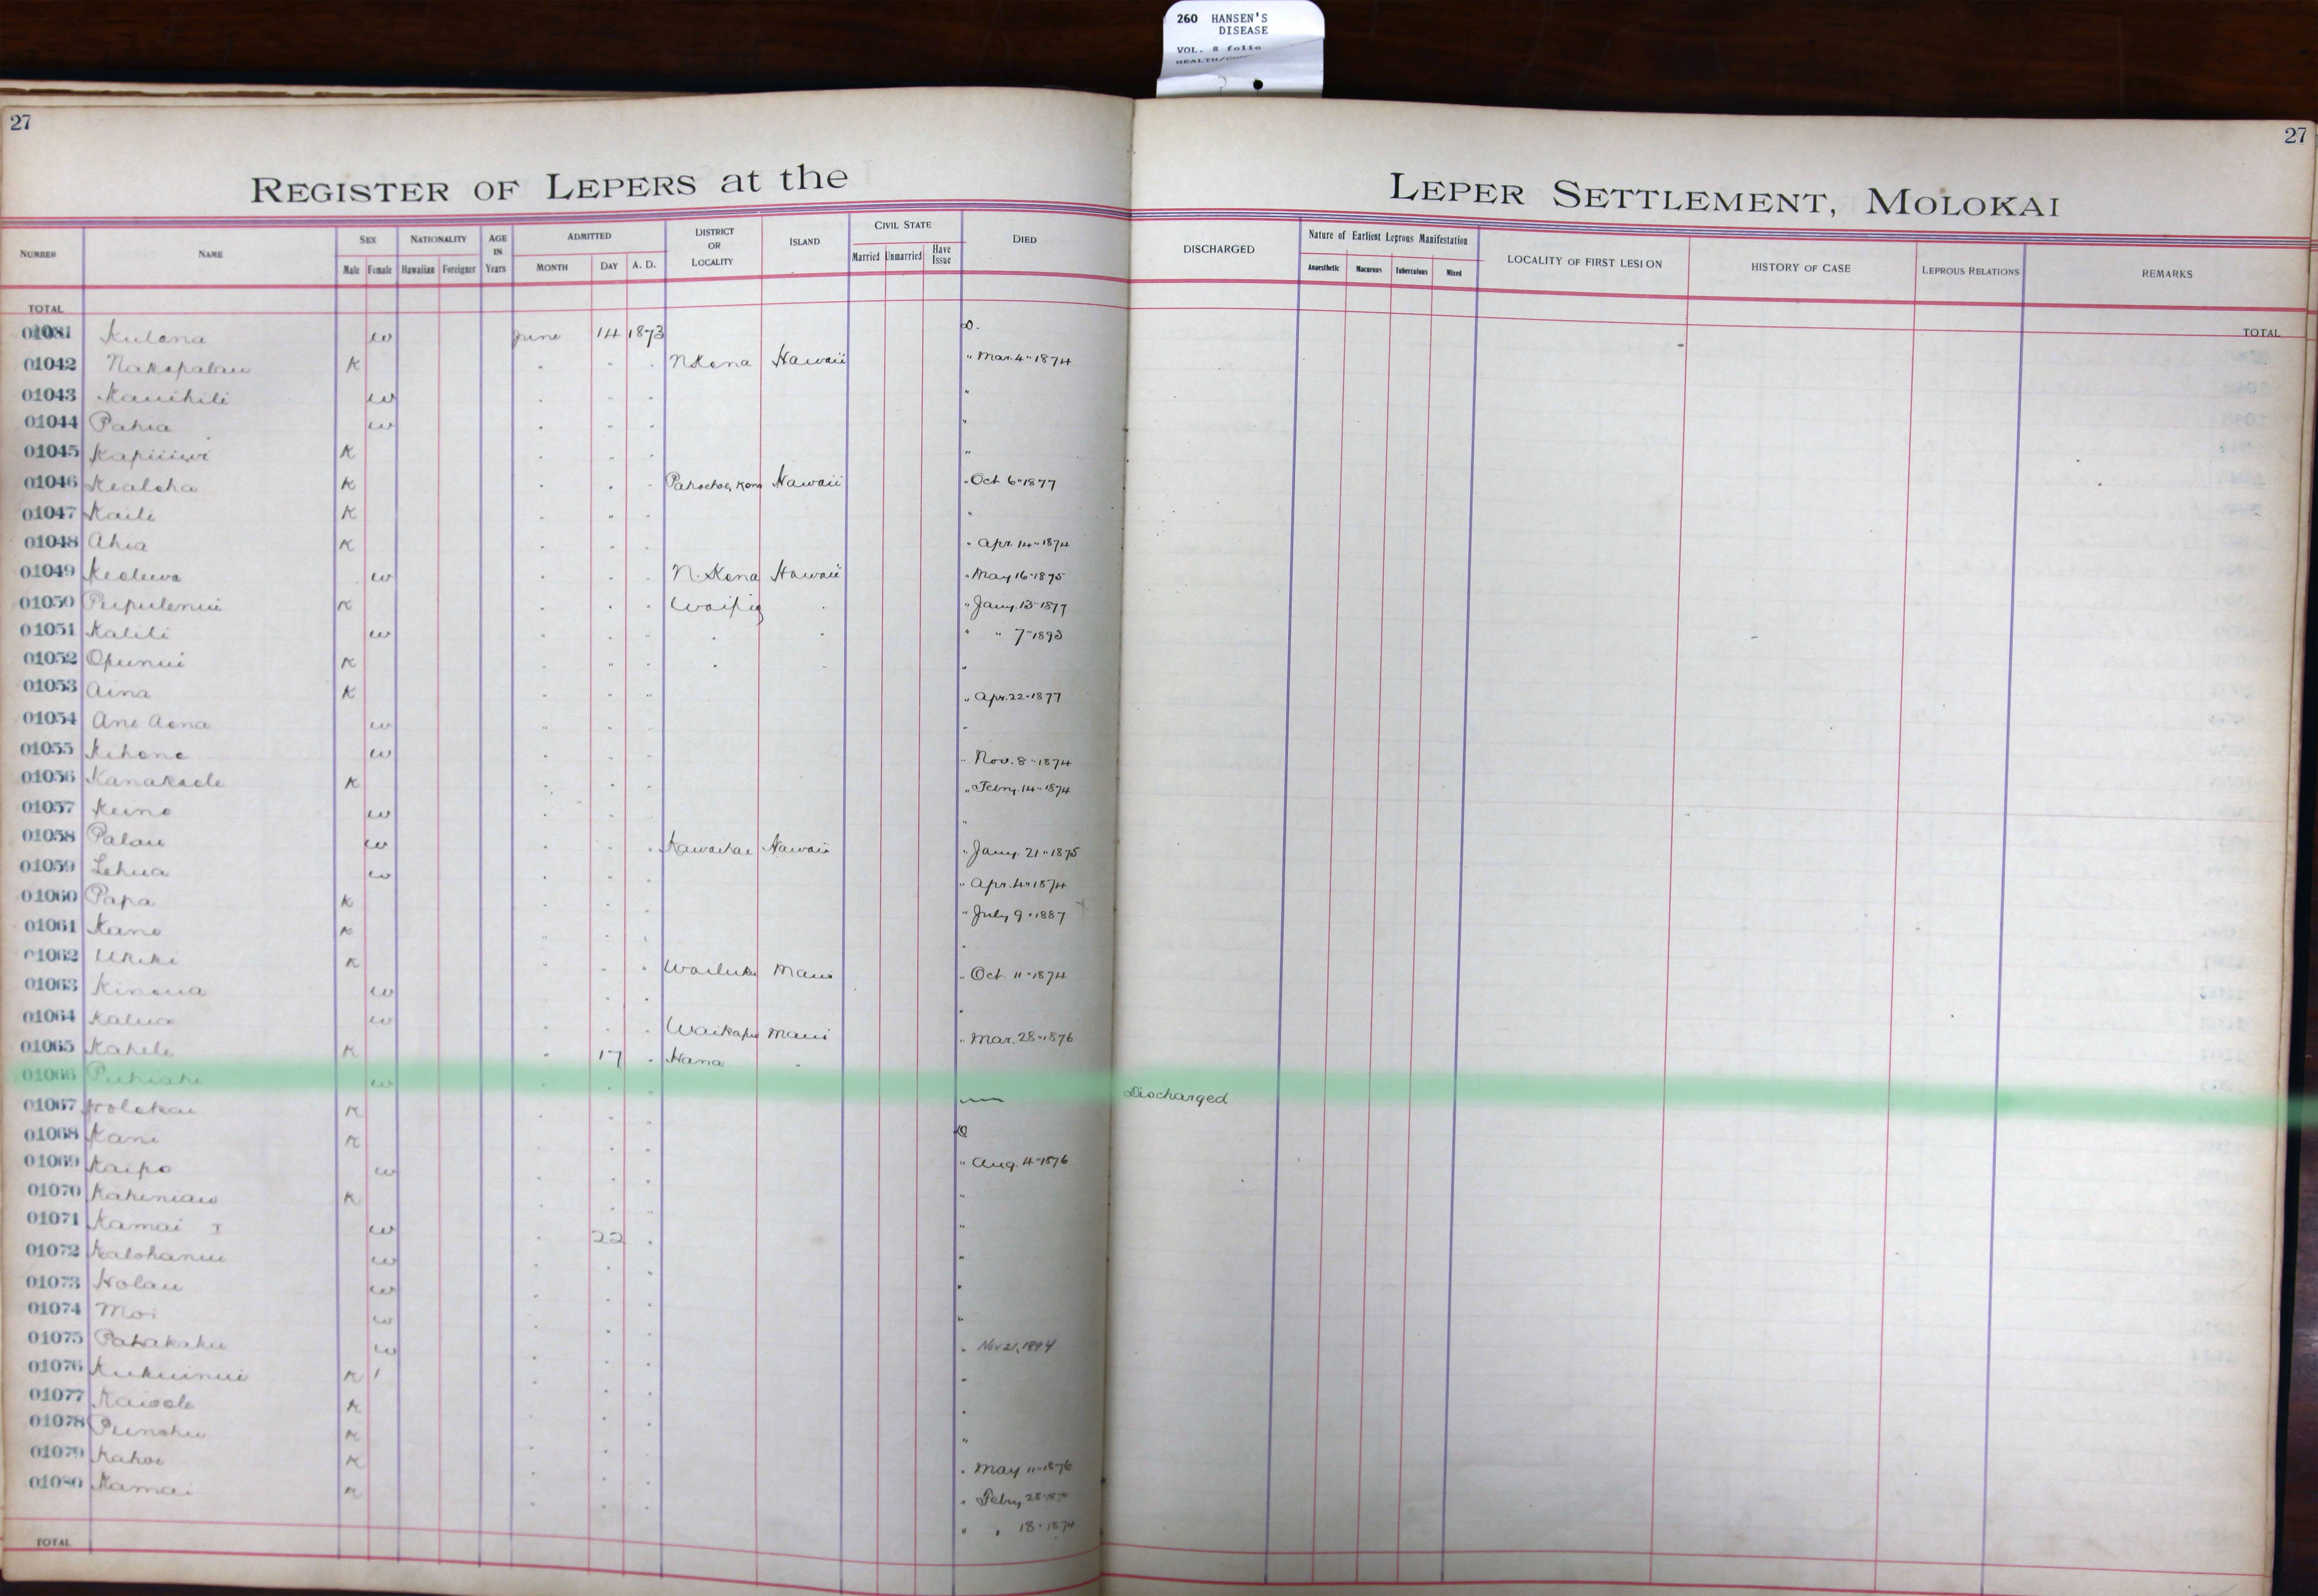 260 HANSEN'S
DISEASE
VOL. 8 folio
27
27
REGISTER OF LEPERS at the LEPER SETTLEMENT, MOLOKAI
NUMBER NAME SEX NATIONALITY AGE IN Years ADMITTED DISTRICT OR LOCALITY ISLAND CIVIL STATE DIED DISCHARGED Nature of Earliest Leprous Manifestation LOCALITY OF FIRST LESION HISTORY OF CASE LEPROUS RELATIONS REMARKS
Male Female Hawaiian Foreigner MONTH DAY A. D. Married Unmarried Have Issue Anaesthetic Macurous Tuberculous Mixed
TOTAL TOTAL
Kulana w June 14 1873 D.
01042 Nakapalau K " " " N Kona Hawaii " Mar. 4" 1874
01043 Kauihili w " " " "
01044 Pahia w " " " "
01045 K " " " "
01046 Kealoha K " " " Pahoehoe, Kona Hawaii " Oct 6" 1877
01047 Kaili K " " " "
01048 Ahia K " " " " Apr. 14" 1874
01049 w " " " N. Kona Hawaii " May 16" 1875
01050 Pupulenui K " " " Waipio " " Jany. 13" 1877
01051 Kalili w " " " " " " " 7" 1893
01052 Opunui K " " " " " "
01053 Aina K " " " " Apr. 22" 1877
01054 Ane Aona w " " " "
01055 Kihene w " " " " Nov. 8" 1874
01056 Kanakaole K " " " " Febry. 14" 1874
01057 Keino w " " " "
01058 Palau w " " " Kawaihae Hawaii " Jany. 21" 1875
01059 Lehua w " " " " Apr. 4" 1874
01060 Papa K " " " " July 9" 1887
01061 Kane K " " " "
01062 Ukeke K " " " Wailuku Maui " Oct. 11" 1874
01063 Kinoua w " " " "
01064 Kalua w " " " Waikapu Maui " Mar. 28" 1876
01065 Kahele K " 17 " Hana "
01066 w " " " — Discharged
01067 Holokai K " " " D
01068 Kani K " " " " Aug. 4" 1876
01069 Kaipo w " " " "
01070 Kaheniau K " " " "
01071 Kamai I w " 22 " "
01072 Kalohanui w " " " "
01073 Holau w " " " "
01074 Moi w " " " " Nov 21, 1894
01075 Pahakaku w " " " "
01076 Kukuinui K " " " "
01077 Kaiaole K " " " "
01078 Punohu K " " " " May 11" 1876
01079 Kahoe K " " " " Febry. 28"
01080 Kamai K " " " " " 18" 1874
TOTAL